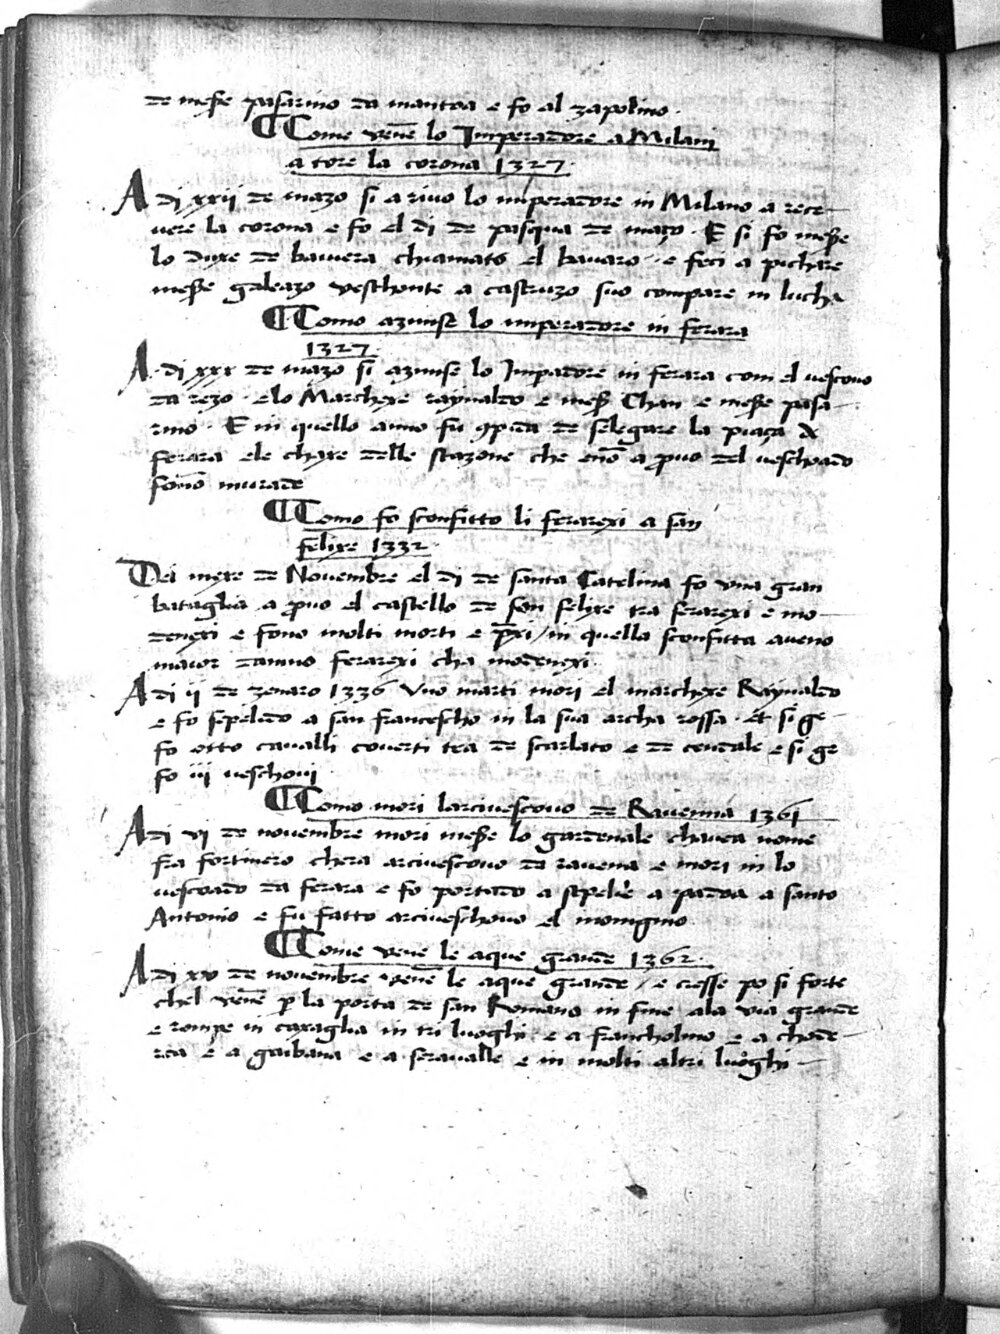 de messe pasarino da mantoa e fo al zapolino.
Come vene lo Imperadore a Milam
a tore la corona 1327.
A di xxii de mazo si a rivo lo imperadore in Milano a rece-
vere la corona e fo el di de pasqua de mazo. E si fo messe
lo duxe de baivera chiamato el bavaro. e feci a pichare
messe galeazo veschonte a castruzo suo compare in lucha
Como azunse lo imperadore in ferara
1327
A. di xxx de mazo si azunse lo Impadore in ferara com el vescovo
da rezo. e lo Marchexe raynaldo e mess Chan e messe pasa-
rino. E in quello anno fu de selegare la piaza de
ferara e le chaxe delle stazone che eno a pvo del veschoado
fono murade
Como fo sconfitto li ferarexi a san
felixe 1332.
Del mexe de Novembre el di de santa Catelina fo una gran
bataglia a pvo el castello de san felixe tra ferarexi e mo-
denexi e fono molti morti e pxi / in quella sconfitta aveno
maior danno ferarexi cha modenexi.
A di ii de zenaro 1336 uno marti mori el marchexe Raynaldo
e fo sepelido a san francescho in la sua archa rossa. et si ge
fo otto cavalli coverti tra de scarlato e de cendale e si ge
fo iii veschovi
Como mori larcivescovo de Ravenna 1361
A di vi de novembre mori messe lo gardenale chavea nome
fra fortinero chera arcivescovo da ravena e mori in lo
vescoado da ferara e fo portado a sepelire a padoa a santo
Antonio e fu fatto arciveschovo el
Come vene le aque grande 1362.
A di xv de novembre vene le aque grande / e cresse po si forte
chel vene p la porta de san Romano in fine ala via grande
e rompe in caxaglia in tri luoghi. e a francholino e a
e a gaibana e a seravalle e in molti altri luoghi